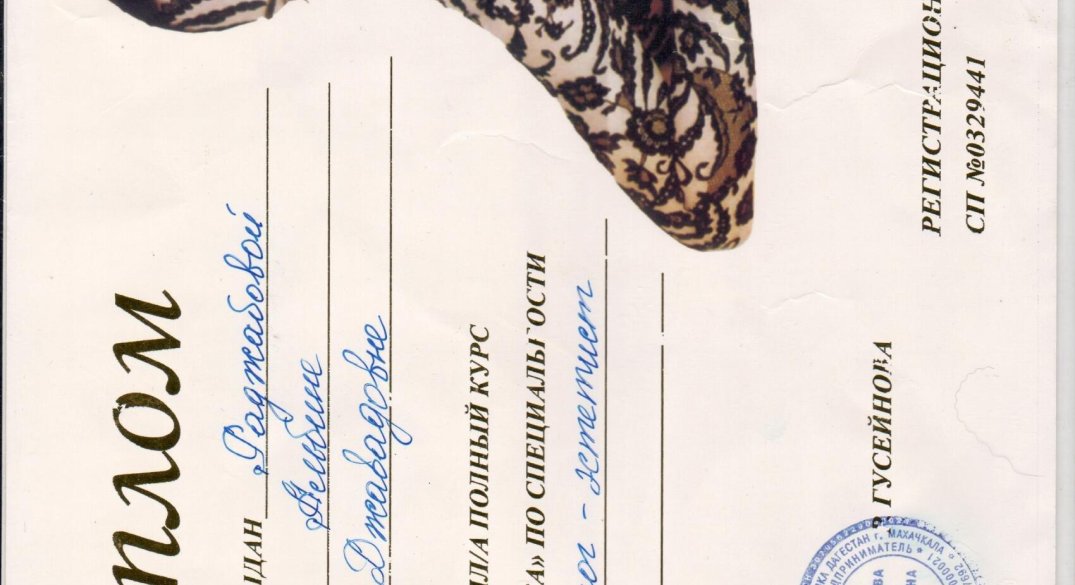 плом
ДАН Раджабовой
Альбине
Джавадовне
ЛА ПОЛНЫЙ КУРС
А» ПО СПЕЦИАЛЬ ОСТИ
ог - эстетист
? ГУСЕЙНОВА
РЕГИСТРАЦИОН
СП №0329441
КА ДАГЕСТАН г. МАХАЧКАЛА *
ПРИНИМАТЕЛЬ *